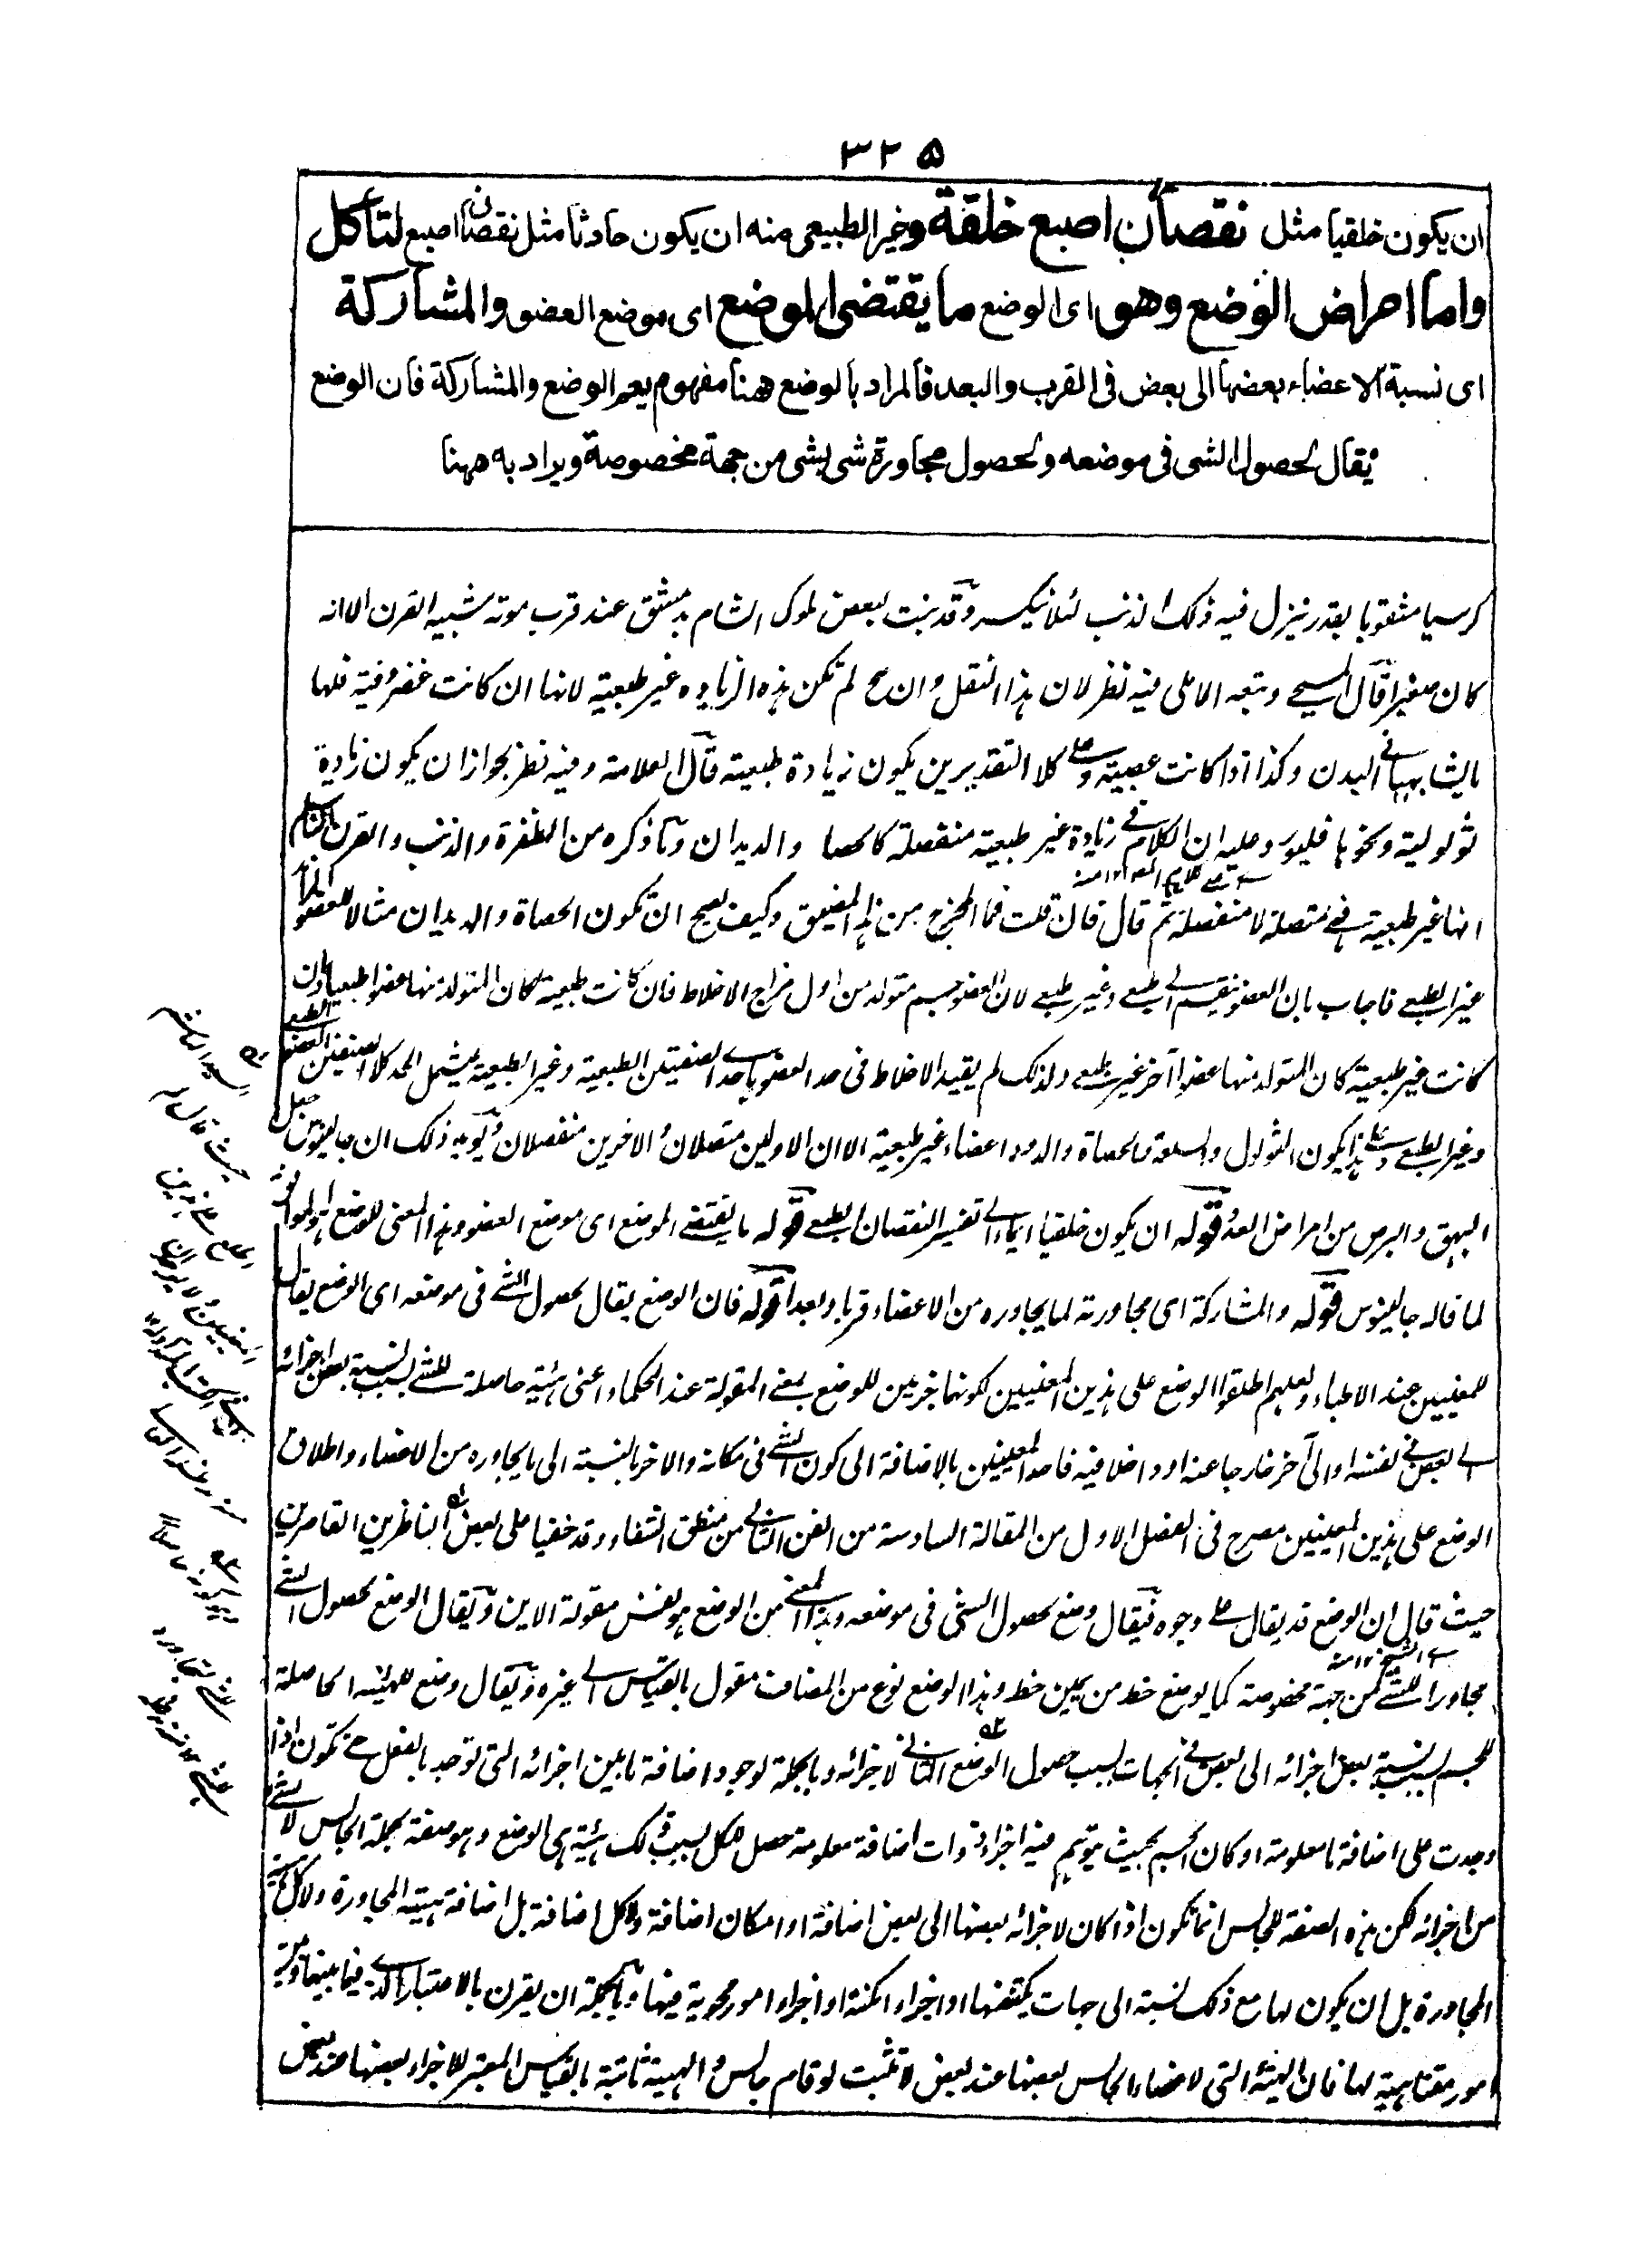 ٣٢٥
ان يكون خلقيا مثل نقصان اصبع خلقة وغير الطبيعى منه ان يكون حادثا مثل نقصان اصبع لتأكل
واما امراض الوضع وهو اى الوضع ما يقتضى الموضع اى موضع العضو والمشاركة
اى نسبة الاعضاء بعضها الى بعض فى القرب والبعد فالمراد بالوضع ههنا مفهوم يعم الوضع والمشاركة فان الوضع
يقال لحصول الشى فى موضعه ولحصول مجاورة شى بشى من جهة مخصوصة ويراد به ههنا
كرسيا مثقوبا بقدر ينزل فيه ذلك الذنب لئلا ينكسر وقد نبت لبعض ملوك الشام بدمشق عند قرب موته شبيه القرن الا انه
كان صغيرا قال المسيحے وتبعه الاملى فيه نظر لان هذا النقل وان صح لم تكن هذه الزيادة غير طبيعية لانها ان كانت غضروفية فلها
ما يشابهها فى البدن وكذا اذا كانت عصبية وعلى كلا التقديرين يكون زيادة طبيعية قال العلامة وفيه نظر لجواز ان يكون زيادة
ثولولية ونحوها فليور وعليه ان الكلام فى زيادة غير طبيعية منفصلة كالحصا والديدان وما ذكره من الظفرة والذنب والقرن
انها غير طبيعية فهى متصلة لا منفصلة ثم قال فان قلت فما المخرج من هذا المضيق وكيف يصح ان تكون الحصاة والديدان مثالا للعضو
غير الطبعى فاجاب بان العضو ينقسم الى طبعى وغير طبعى لان العضو جسم متولد من اول مزاج الاخلاط فان كانت طبيعية كان المتولد منها عضوا طبعيا وان
كانت غير طبيعية كان المتولد منها عضوا آخر غير طبعى ولذلك لم يقيد الاخلاط فى حد العضو باحد الصنفين الطبيعية وغير الطبيعية ليشمل الحد كلا الصنفين الطبعى
وغير الطبعى وعلى هذا يكون الثولول والسلعة والحصاة والدود اعضاء غير طبيعية الا ان الاولين متصلان والاخرين منفصلان ويؤيد ذلك ان جالينوس جعل
البهق والبرص من امراض العدد قوله ان يكون خلقيا ايماء الى تفسير النقصان الطبعى قوله ما يقتضى الموضع اى موضع العضو وهذا المعنى للوضع
لما قاله جالينوس قوله والمشاركة اى مجاورته لما يجاوره من الاعضاء قربا وبعدا قوله فان الوضع يقال لحصول الشى فى موضعه اى الوضع يقال
للمعنيين عند الاطباء ولعلهم اطلقوا الوضع على هذين المعنيين لكونهما جزئين للوضع بمعنى المقولة عند الحكماء اعنى هيئة حاصلة للشى بسبب نسبة بعض اجزائه
الى بعض فى نفسه او الى آخر خارجا عنه او داخلا فيه فاحد المعنيين بالاضافة الى كون الشى فى مكانه والاخر بالنسبة الى ما يجاوره من الاعضاء واطلاق
الوضع على هذين المعنيين مصرح فى الفصل الاول من المقالة السادسة من الفن الثانى من منطق الشفاء وقد خفيا على بعض الناظرين القاصرين
حيث قال ان الوضع قد يقال على وجوه فيقال وضع لحصول الشى فى موضعه وهذا المعنى من الوضع هو نفس مقولة الاين ويقال الوضع لحصول الشى
مجاورا للشى من جهة مخصوصة كما يوضع خط من يمين خط وهذا الوضع نوع من المضاف مقول بالقياس الى غيره ويقال وضع للهيئة الحاصلة
للجسم بسبب نسبة بعض اجزائه الى بعض فى الجهات بسبب حصول الوضع الثانى لاجزائه وبالجملة لوجود اضافة ما بين اجزائه التى توجد بالفعل حتى تكون اذا
وجدت على اضافة ما معلومة او كان الجسم بحيث يتوهم فيه اجزاء ذوات اضافة معلومة حصل للكل بسبب ذلك هيئة هى الوضع وهو صفة لجملة الجالس لا لشى
من اجزائه لكن هذه الصفة للجالس انما تكون اذا كان لاجزائه بعضها الى بعض اضافة او امكان اضافة ولا كل اضافة بل اضافة هيئة المجاورة ولا كل هيئة
المجاورة بل ان يكون لها مع ذلك نسبة الى جهات يكتنفها او اجزاء امكنة او اجزاء امور محوية فيها وبالجملة ان يقرن بالاعتبار الذى فيما بينها وبين
امور مقتاهية لها فان الهيئة التى لاعضاء الجالس بعضها عند بعض لا تثبت لو قام جالس والهيئة ثابتة بالقياس المعتبر للاجزاء بعضها عند بعض